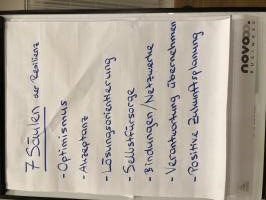 7 Säulen der Resilienz
- Optimismus
- Akzeptanz
- Lösungsorientierung
- Selbstfürsorge
- Bindungen/Netzwerke
- Verantwortung übernehmen
- Positive Zukunftsplanung
novo